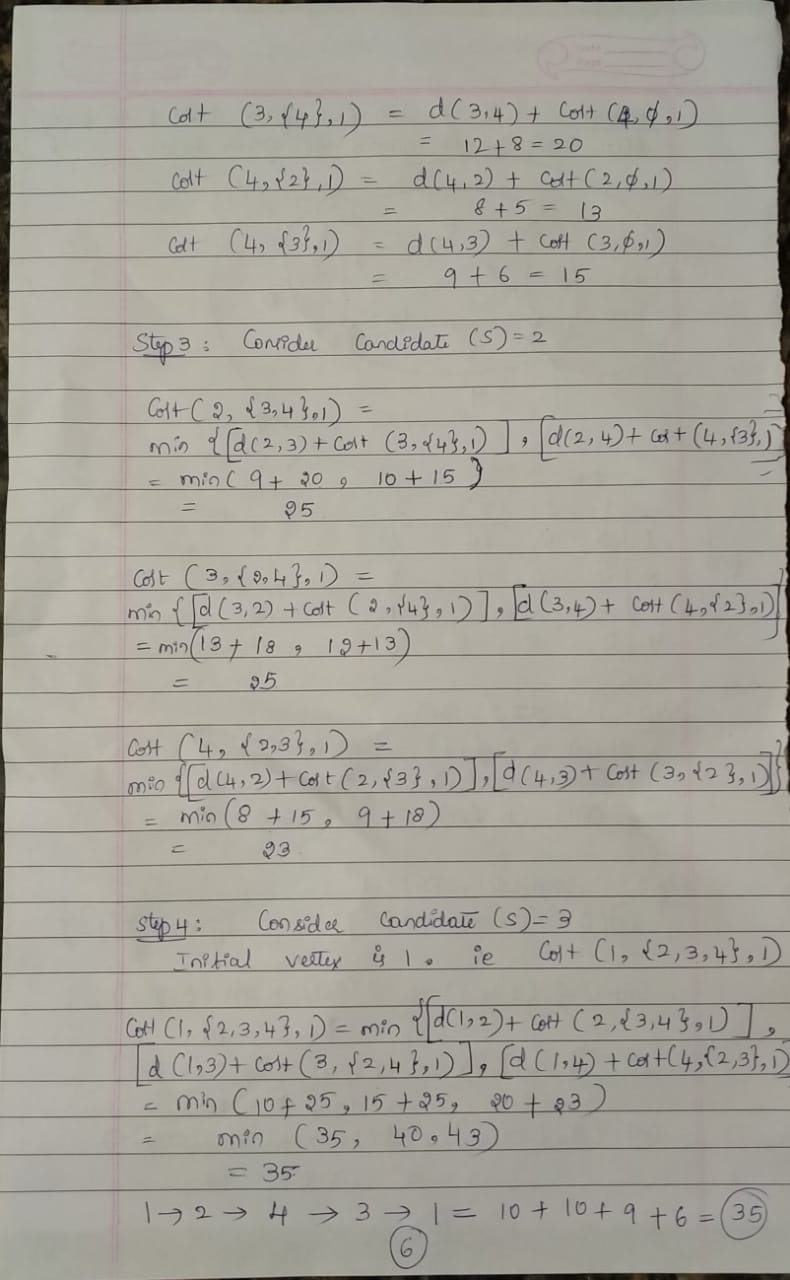 Cost (3, {4}, 1) = d(3,4) + Cost (4, ϕ, 1)
= 12 + 8 = 20
Cost (4, {2}, 1) = d(4,2) + Cost (2, ϕ, 1)
= 8 + 5 = 13
Cost (4, {3}, 1) = d(4,3) + Cost (3, ϕ, 1)
= 9 + 6 = 15
Step 3 : Consider Candidate (S) = 2
Cost (2, {3,4}, 1) =
min {[d(2,3) + Cost (3, {4}, 1)], [d(2,4) + Cost (4, {3}, 1)
= min( 9 + 20, 10 + 15 }
= 25
Cost (3, {2,4}, 1) =
min {[d(3,2) + Cost (2, {4}, 1)], [d(3,4) + Cost (4, {2}, 1)]}
= min(13 + 18, 12 + 13)
= 25
Cost (4, {2,3}, 1) =
min {[d(4,2) + Cost (2, {3}, 1)], [d(4,3) + Cost (3, {2}, 1)]}
= min (8 + 15, 9 + 18)
= 23
Step 4 : Consider Candidate (S) = 3
Initial vertex is 1. ie Cost (1, {2,3,4}, 1)
Cost (1, {2,3,4}, 1) = min {[d(1,2) + Cost (2, {3,4}, 1)],
[d(1,3) + Cost (3, {2,4}, 1)], [d(1,4) + Cost (4, {2,3}, 1)
= min (10 + 25, 15 + 25, 20 + 23)
= min (35, 40, 43)
= 35
1 → 2 → 4 → 3 → 1 = 10 + 10 + 9 + 6 = 35
6